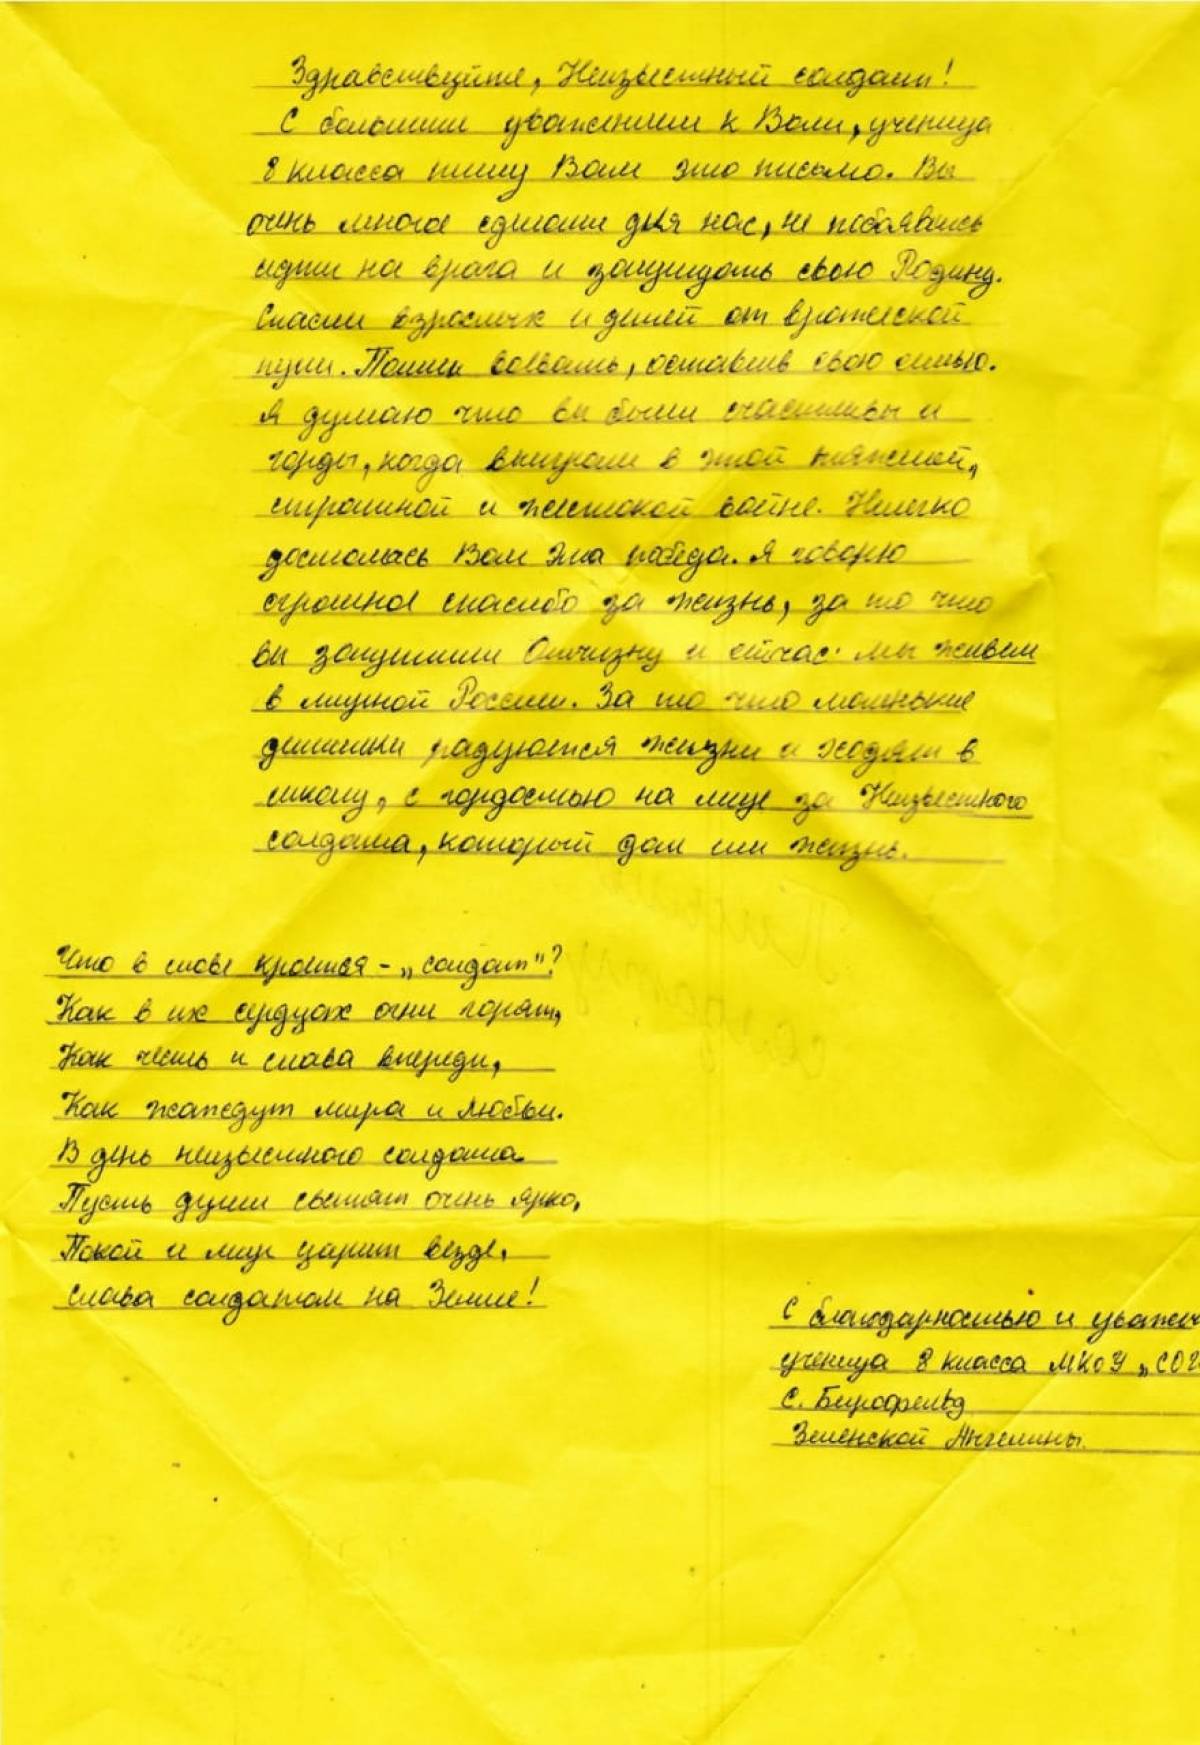 Здравствуйте, Неизвестный солдат!
С большим уважением к Вам, ученица
8 класса пишу Вам это письмо. Вы
очень многое сделали для нас, не побоявшись
идти на врага и защищать свою Родину.
Спасли взрослых и детей от вражеской
пули. Пошли воевать, оставив свою семью.
Я думаю что вы были счастливы и
горды, когда выиграли в этой тяжелой,
страшной и жестокой войне. Нелегко
досталась Вам эта победа. Я говорю
огромное спасибо за жизнь, за то что
вы защитили Отчизну и сейчас мы живем
в мирной России. За то что маленькие
детишки радуются жизни и ходят в
школу, с гордостью на лице за Неизвестного
солдата, который дал им жизнь.
Что в слове кроется - „солдат"?
Как в их сердцах огни горят,
Как честь и слава впереди,
Как жаждут мира и любви.
В день неизвестного солдата
Пусть души светят очень ярко,
Покой и мир царит везде,
Слава солдатам на Земле!
С благодарностью и уважен
ученица 8 класса МКОУ „СОШ
с. Бирофельд
Зеленской Ангелины.
Письмо
солдату